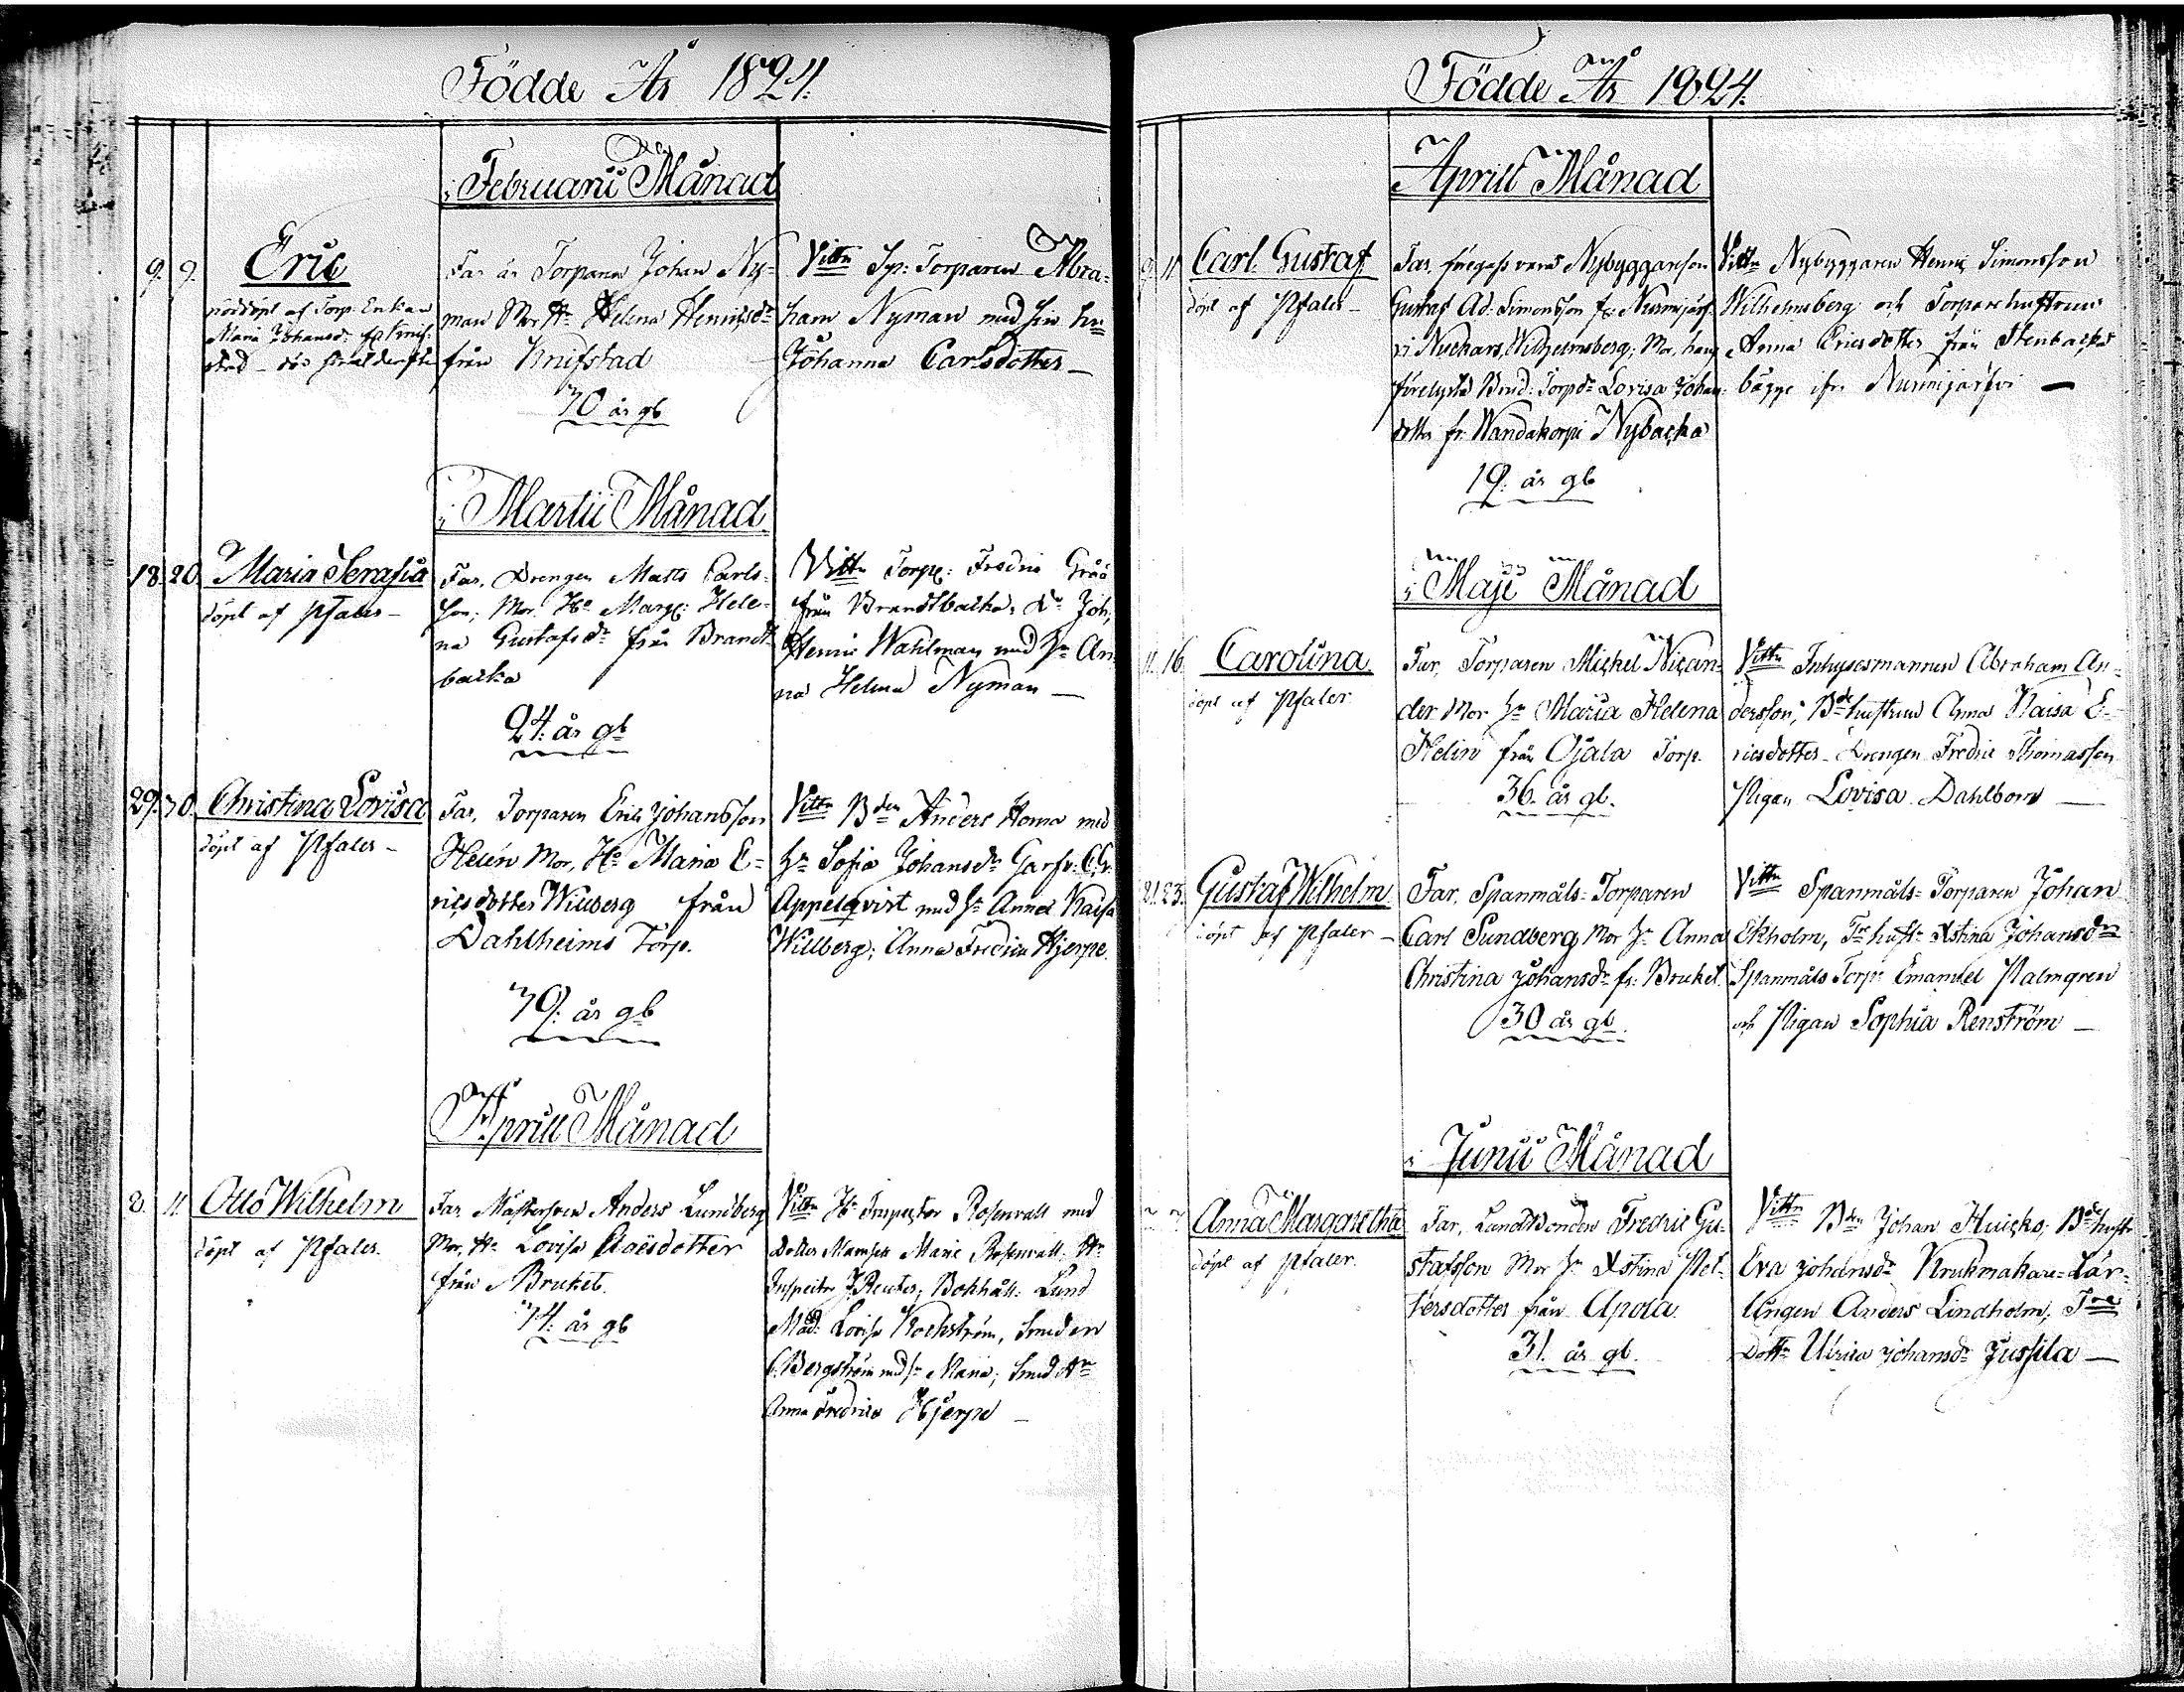 Födde År 1824.
i Februarii Månad
9. 9. Eric
nöddöpt af Torp. Enkan
Maria Johansdr fr Knif-
stad – dog straxt derefter
Far är Torparen Johan Ny-
man Mor Hu Helena Henricsdr
från Knifstad
30 år gl
Vittn Sp: Torparen Abra-
ham Nyman med sin hu
Johanna Carlsdotter –
i Martii Månad
18. 20. Maria Serafia
döpt af Pfaler –
Far, Drengen Matts Carls-
son; Mor Hu Marg: Hele-
na Gustafsdr från Brandt-
backa
24. år gl
Vittn Torp: Fredric Gröö
från Brandtbacka, Dr Joh,
Henric Wahlman med Hu An-
na Helena Nyman –
29. 30. Christina Lovisa
döpt af Pfaler –
Far, Torparen Eric Johansson
Helén Mor, Hu Maria E-
ricsdotter Willberg från
Dahlheims Torp.
39. år gl
Vittn Bden Anders Homa med
Hu Sofia Johansdr Garfv: C.G.
Appelqvist med Hu Anna Kaisa
Willberg; Anna Fredrica Hjerpe.
Aprill Månad
8. 11. Otto Wilhelm
döpt af Pfaler.
Far Mästersven Anders Lundberg
Mor, Hu Lovisa Roësdotter
från Bruket.
34. år gl
Vittn Hr Inspector Rosenvall med
dotter Mamsell Marie Rosenvall, Hr
Inspector J Reuter; Bokhåll. Lund
Mad: Lovisa Kochström, Smeden
C. Bergström med hu Maria; Smed Hu
Anna Fredrica Hjerpe –
Födde År 1824.
Aprill Månad
9. 11. Carl Gustaf
döpt af Pfaler –
Far, föregifvand Nybyggareson
Gustaf Ad: Simonsson fr. Nurmijärf-
vi Nuckars, Wilhelmsberg; Mor, hans
förelysta Brud: Torpdr Lovisa Johans-
dotter fr. Wandakorpi Nybacka
19. år gl
Vittn Nybyggaren Henric Simonsson
Wilhelmsberg och Torparehustrun
Anna Ericsdotter från Stenbacka
bägge ifrån Nurmijärfvi –
i Maji Månad
11. 16. Carolina
döpt af Pfaler
Far, Torparen Mickel Nican-
der Mor Hu Maria Helena
Helin från Ojala Torp.
36. år gl.
Vittn Inhysesmannen Abraham An-
dersson; Bde hustrun Anna Kaisa E-
ricsdotter – Drengen Fredric Thomasson
Pigan Lovisa Dahlbom –
21. 23. Gustaf Wilhelm
döpt af Pfaler –
Far, Spanmåls-Torparen
Carl Sundberg Mor Hu Anna
Christina Johansdr fr. Bruket.
30 år gl.
Vittn Spanmåls-Torparen Johan
Ekholm, Tre hustr Xstina Johansdr
Spanmåls Torp: Emanuel Palmgren
och Pigan Sophia Renström –
i Junii Månad
Anna Margaretha
döpt af Pfaler.
Far, Landtbonden Fredric Gu-
stafsson Mor Hu Xstina Pet-
tersdotter från Apola.
31. år gl.
Vittn Bden Johan Huicko; Bde hustr
Eva Johansdr Krukmakare-Lär-
lingen Anders Lindholm; Tre
Dottr Ulrica Johansdr Jussila –